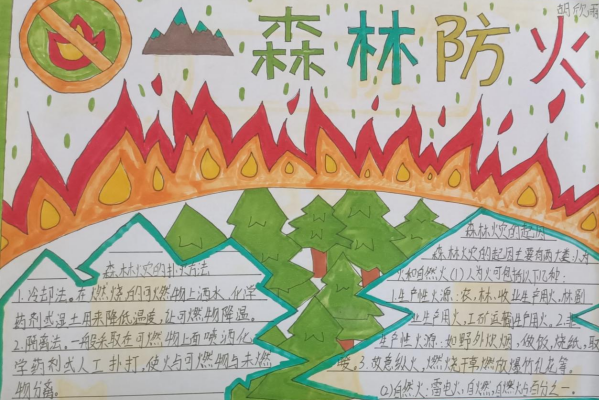 胡欣雨
森林防火
森林火灾的扑火方法
1.冷却法。在燃烧的可燃物上洒水、化学
药剂或湿土用来降低温度,让可燃物降湿。
2.隔离法。一般采取在可燃物上面喷洒化
学药剂或人工扑打,使火与可燃物与未燃
物分离。
森林火灾的起因
森林火灾的起因主要有两大类:人为
火和自然火(1)人为火可包括以下几种:
1.生产性火源:农、林、牧业生产用火,林副
业生产用火,工矿运输生产用火,2.非
生产性火源:如野外炊烟,做饭,烧纸,取
暖,3.故意纵火,燃烧干草,燃放爆竹礼花等。
(2)自然火:雷电火,自燃,自燃火占百分之一.